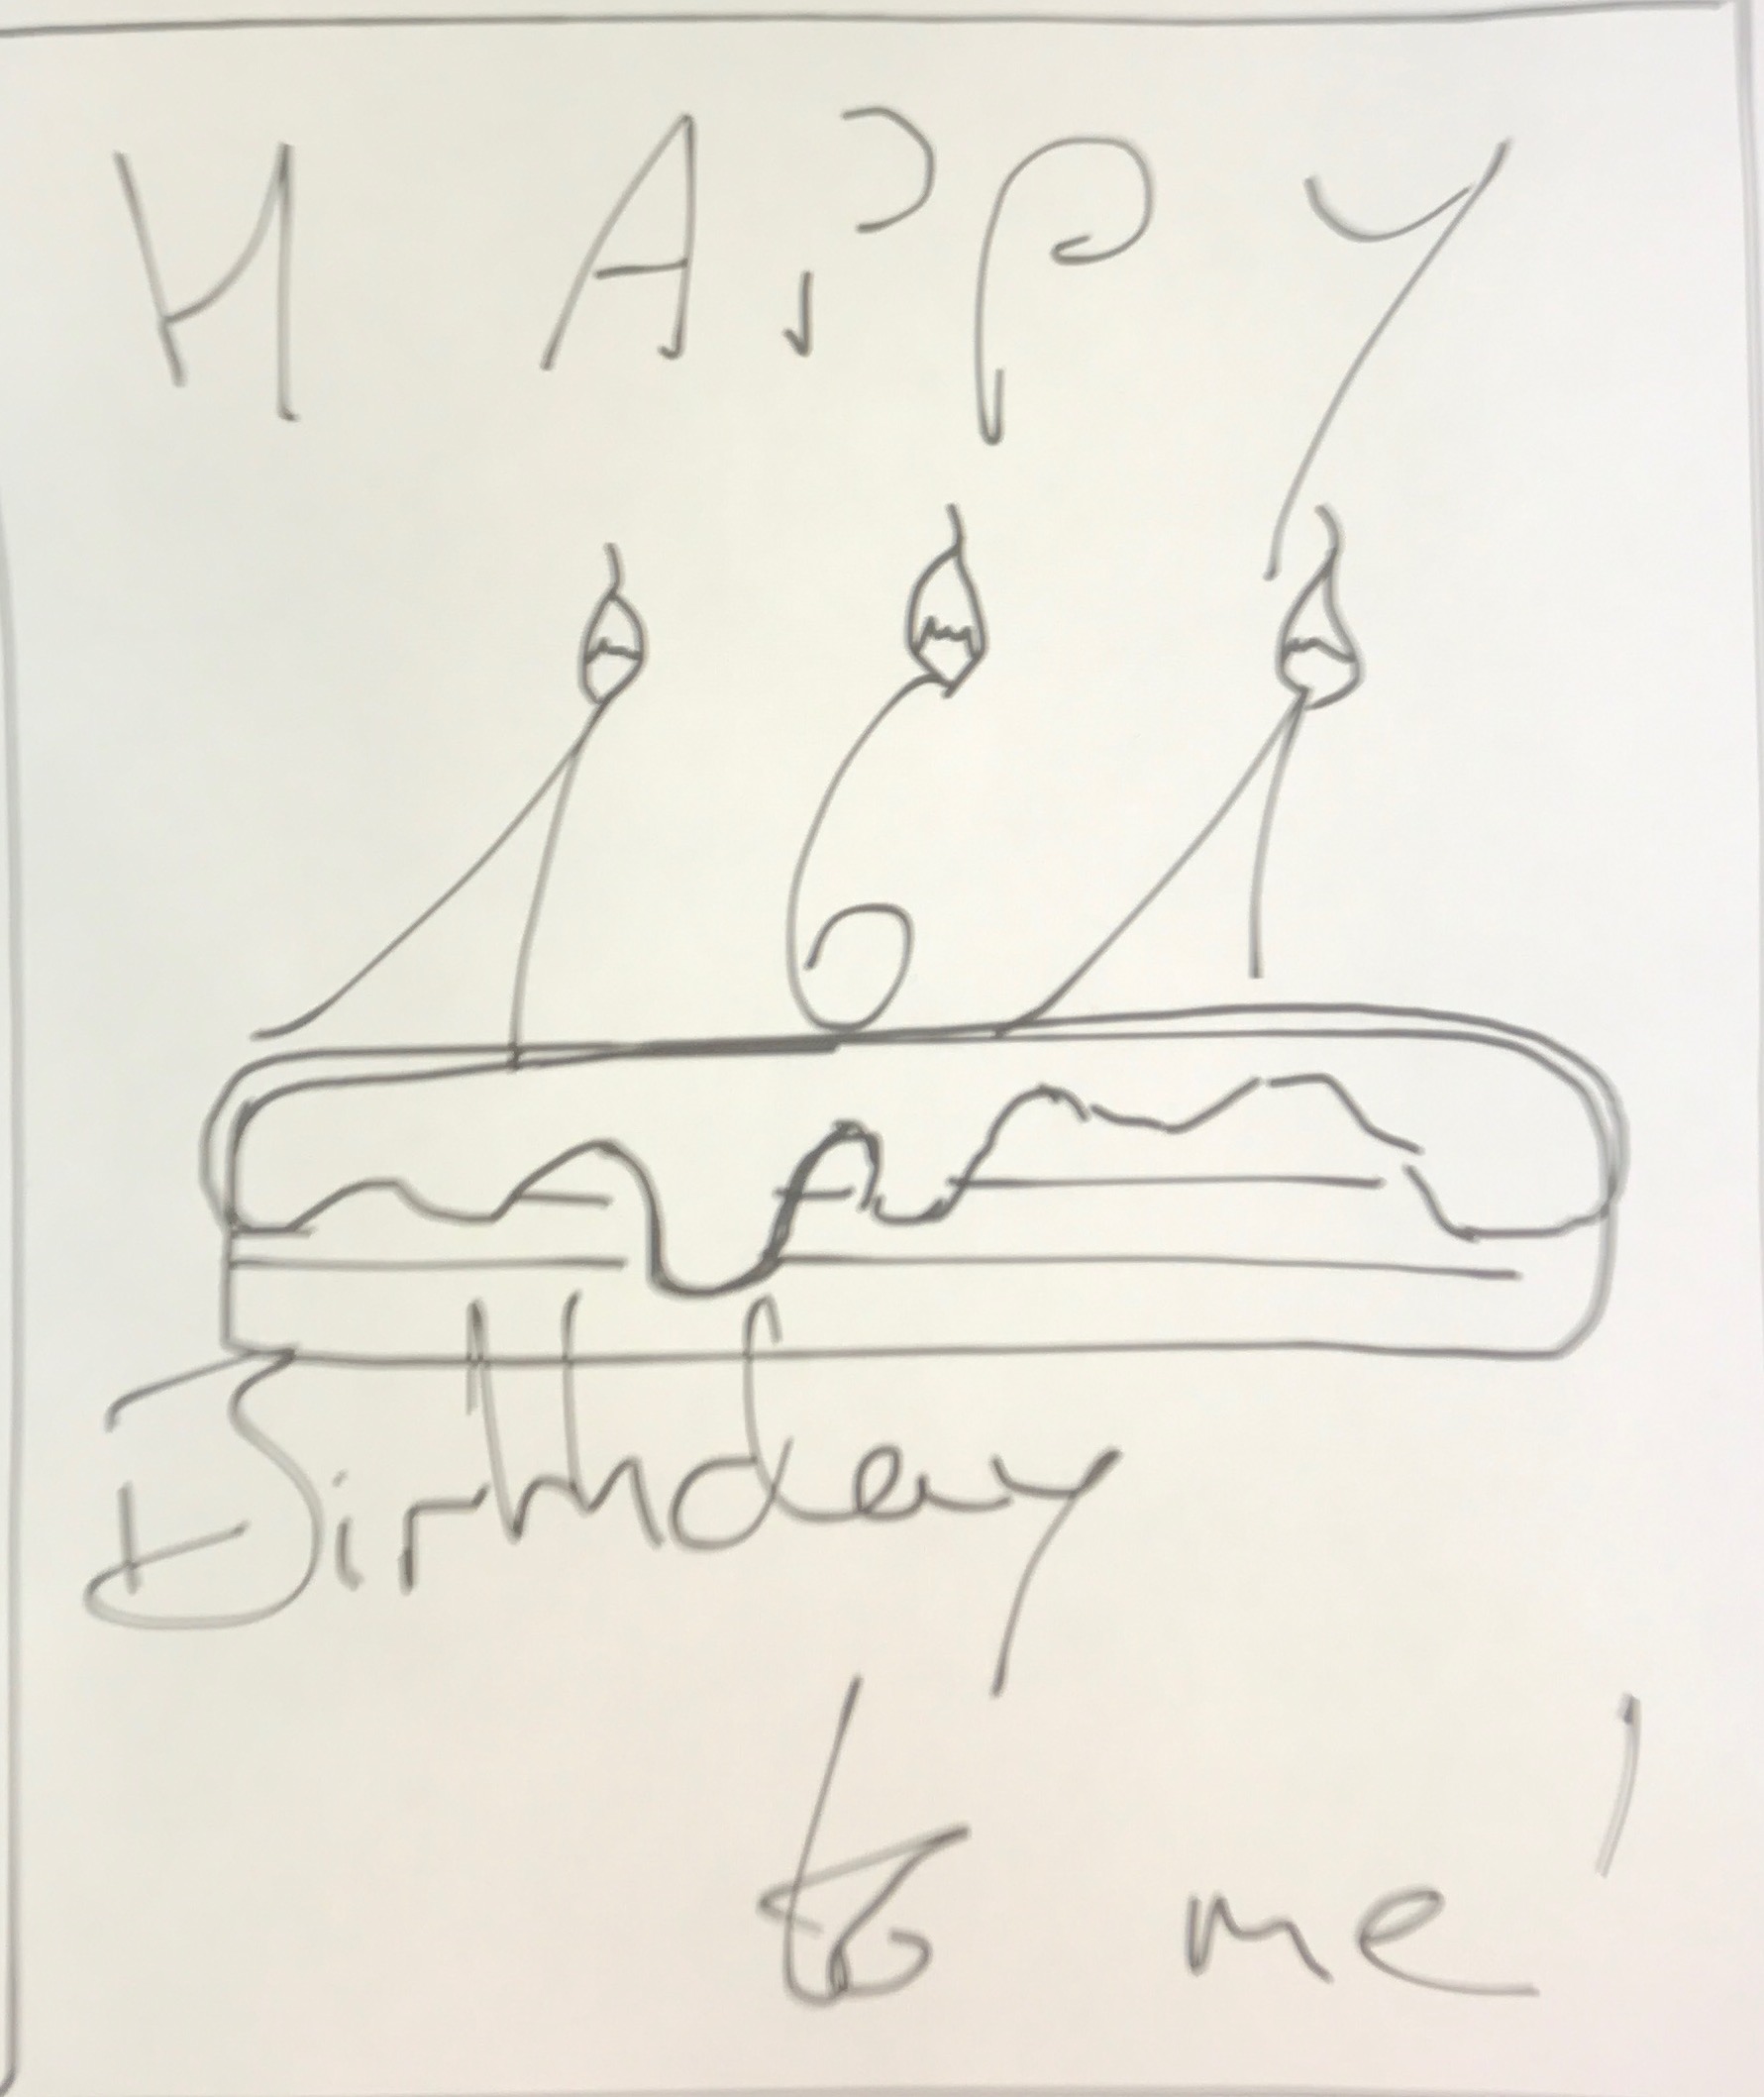 HAPPY
161
Birthday
to me!